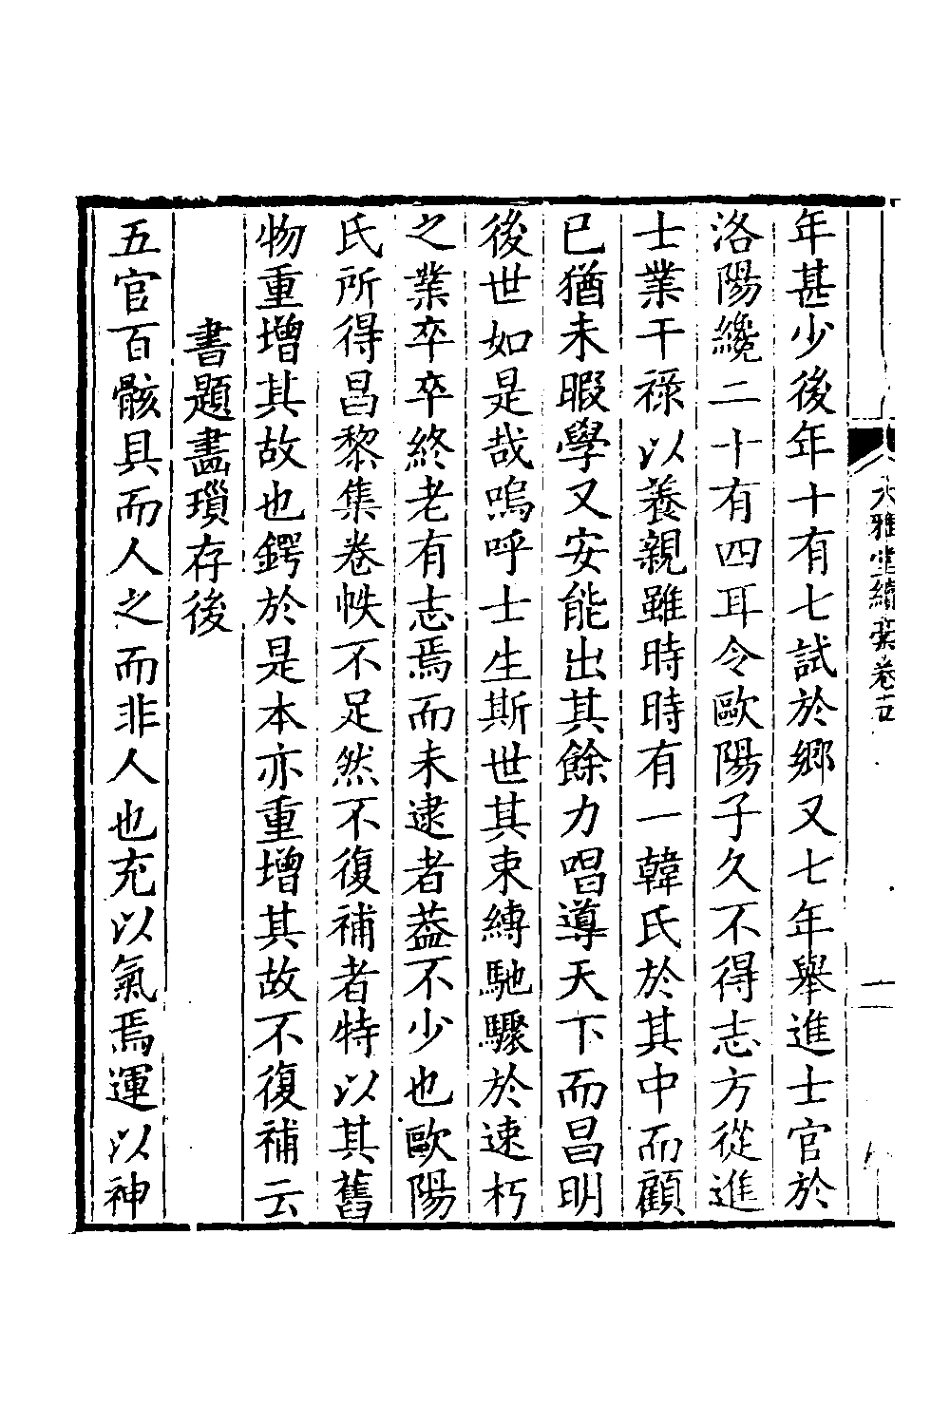 年甚少後年十有七試於鄉又七年舉進士官於
洛陽纔二十有四耳令歐陽子久不得志方從進
士業干祿以養親雖時時有一韓氏於其中而顧
已猶未暇學又安能出其餘力唱導天下而昌明
後世如是哉嗚呼士生斯世其束縛馳驟於速朽
之業卒卒終老有志焉而未逮者葢不少也歐陽
氏所得昌黎集卷帙不足然不復補者特以其舊
物重增其故也鍔於是本亦重增其故不復補云
書題畫瑣存後
五官百骸具而人之而非人也充以氣焉運以神
大雅堂續稾卷十五